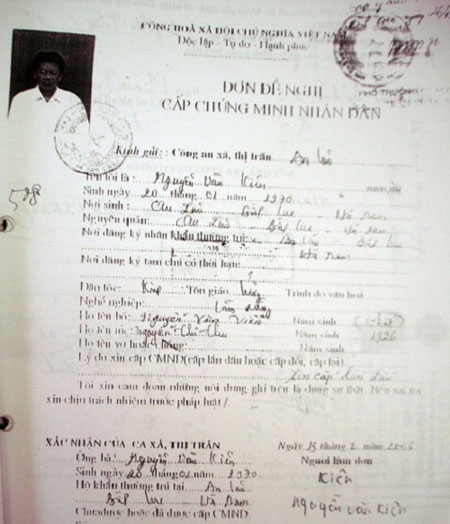 CỘNG HOÀ XÃ HỘI CHỦ NGHĨA VIỆT NAM
Độc lập - Tự do - Hạnh phúc
ĐƠN ĐỀ NGHỊ
CẤP CHỨNG MINH NHÂN DÂN
Kính gửi: Công an xã, thị trấn An Lão
Tên tôi là: Nguyễn Văn Kiên
Sinh ngày 20 tháng 01 năm 1970
Nơi sinh: An Lão Bình Lục Hà Nam
Nguyên quán: An Lão Bình Lục Hà Nam
Nơi đăng ký nhân khẩu thường trú: An Lão Bình Lục
Hà Nam
Nơi đăng ký tạm chú có thời hạn:
Dân tộc: Kinh Tôn giáo: Trình độ văn hoá
Nghề nghiệp:
Họ tên bố: Nguyễn Văn Viên Năm sinh (chết)
Họ tên mẹ: Nguyễn Thị Năm sinh 1926
Họ tên vợ hoặc chồng: Năm sinh:
Lý do xin cấp CMND (cấp lần đầu hoặc cấp đổi, cấp lại)
Xin cấp lần đầu
Tôi xin cam đoan những nội dung ghi trên là đúng sự thật. Nếu sai tôi
xin chịu trách nhiệm trước pháp luật /.
XÁC NHẬN CỦA CA XÃ, THỊ TRẤN
Ngày 13 tháng 2 năm
Ông bà: Nguyễn Văn Kiên Người làm đơn
Sinh ngày 20 tháng 01 năm 1970 Kiên
Hộ khẩu thường trú tại An Lão
Bình Lục Hà Nam Nguyễn văn kiên
Chưa được hoặc đã được cấp CMND